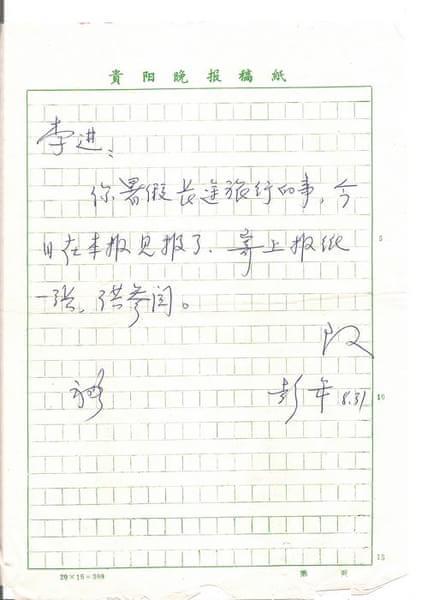 貴阳晚报稿紙
李进:
你暑假长途旅行的事,今
日在本报见报了.寄上报纸
一张,供参阅。
彭年 8.31
5
10
15
20×15=300
第 页